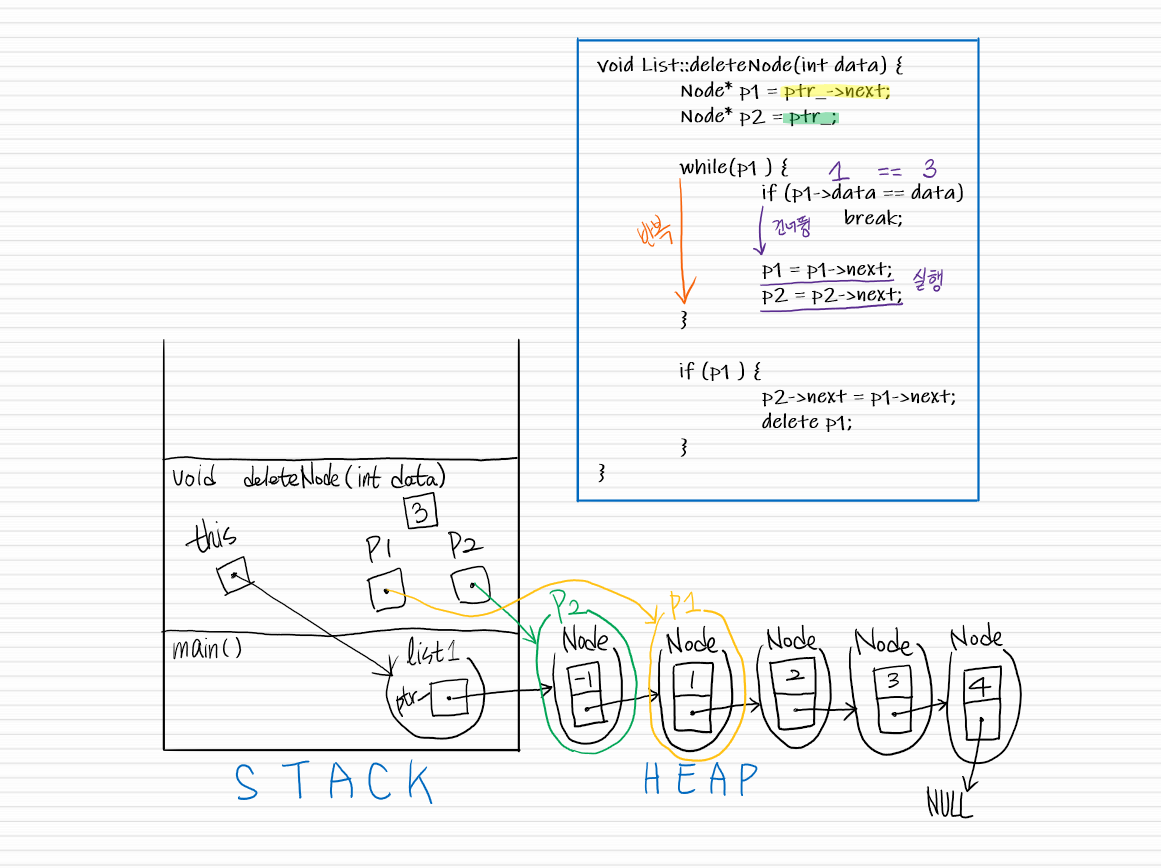 void List::deleteNode(int data) {
Node* p1 = ptr_->next;
Node* p2 = ptr_;
while(p1 ) { 1 == 3
if (p1->data == data)
반복 건너뜀 break;
p1 = p1->next; 실행
p2 = p2->next;
}
if (p1 ) {
p2->next = p1->next;
delete p1;
}
}
void deleteNode(int data)
3
this P1 P2
P2 P1
main() list1 Node Node Node Node Node
ptr_ -1 1 2 3 4
STACK HEAP
NULL